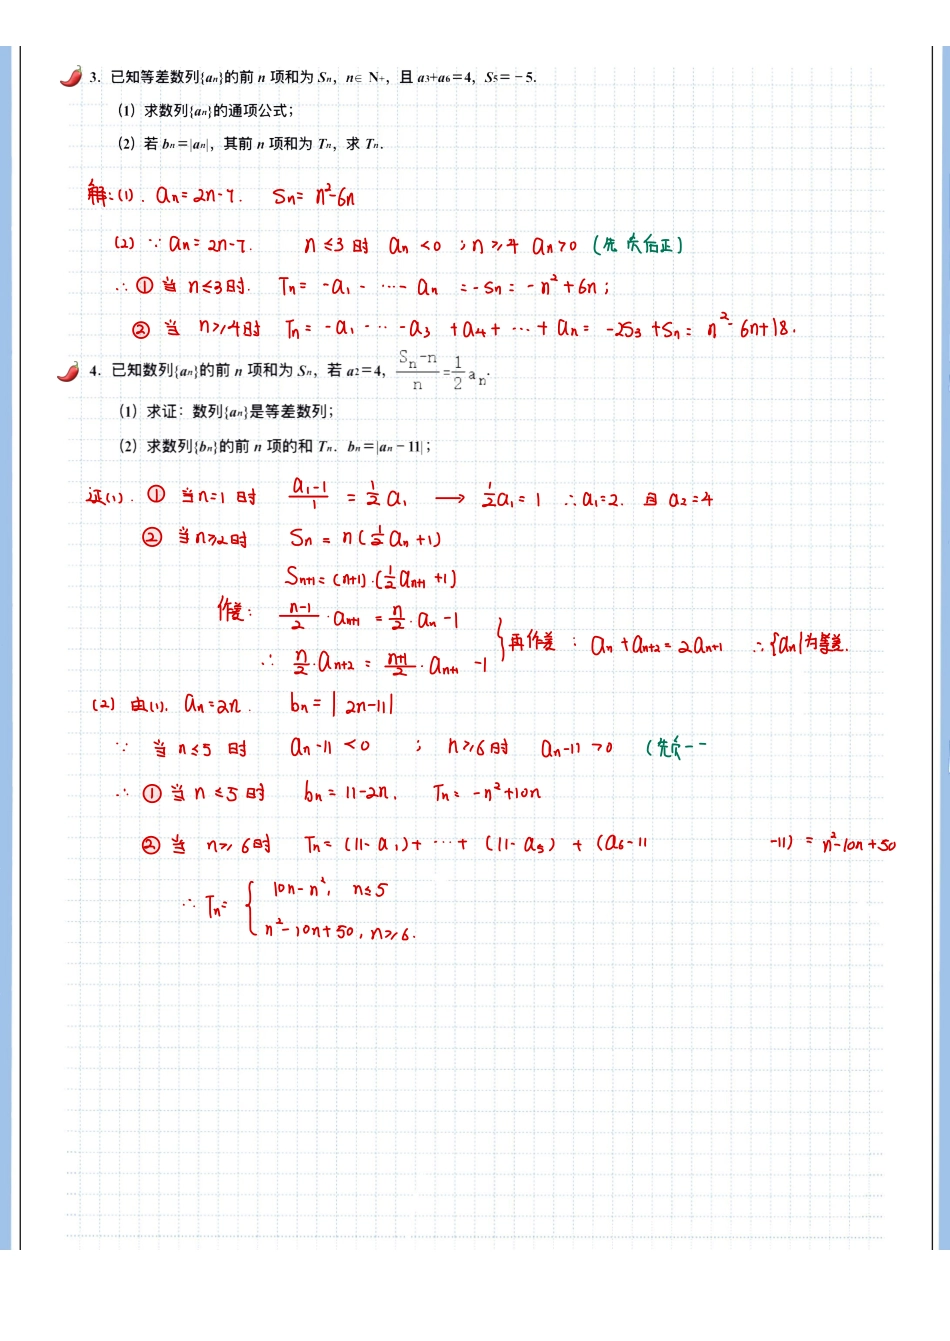 3. 已知等差数列{an}的前 n 项和为 Sn, n∈ N+, 且 a3+a6=4, S5=-5.
(1) 求数列{an}的通项公式;
(2) 若 bn=|an|, 其前 n 项和为 Tn, 求 Tn.
解:(1). an=2n-7. Sn=n²-6n
(2) ∵ an=2n-7. n≤3时 an<0 ; n≥4 an>0 (先负后正)
∴ ① 当 n≤3时. Tn=-a1- ⋯ -an =-Sn=-n²+6n;
② 当 n≥4时 Tn=-a1- ⋯ -a3 +a4+ ⋯ + an= -2S3+Sn= n²-6n+18.
4. 已知数列{an}的前 n 项和为 Sn, 若 a2=4, (Sn-n)/n=1/2 an.
(1) 求证: 数列{an}是等差数列;
(2) 求数列{bn}的前 n 项的和 Tn. bn=|an-11|;
证(1). ① 当n=1时 (a1-1)/1 = 1/2 a1 → 1/2 a1=1 ∴a1=2. 且 a2=4
② 当n≥2时 Sn = n(1/2 an+1)
Sn+1=(n+1)·(1/2 an+1 +1)
作差: (n-1)/2 · an+1 = n/2 · an -1
∴ n/2 · an+2 = (n+1)/2 · an+1 -1
} 再作差: an+an+2=2an+1 ∴{an}为等差.
(2) 由(1). an=2n. bn=|2n-11|
∵ 当 n≤5 时 an-11<0 ; n≥6时 an-11>0 (先负--
∴ ① 当 n≤5时 bn=11-2n. Tn=-n²+10n
② 当 n≥6时 Tn=(11-a1)+ ⋯ + (11-a5) + (a6-11 -11) = n²-10n+50
∴ Tn= { 10n-n², n≤5
n²-10n+50, n≥6.